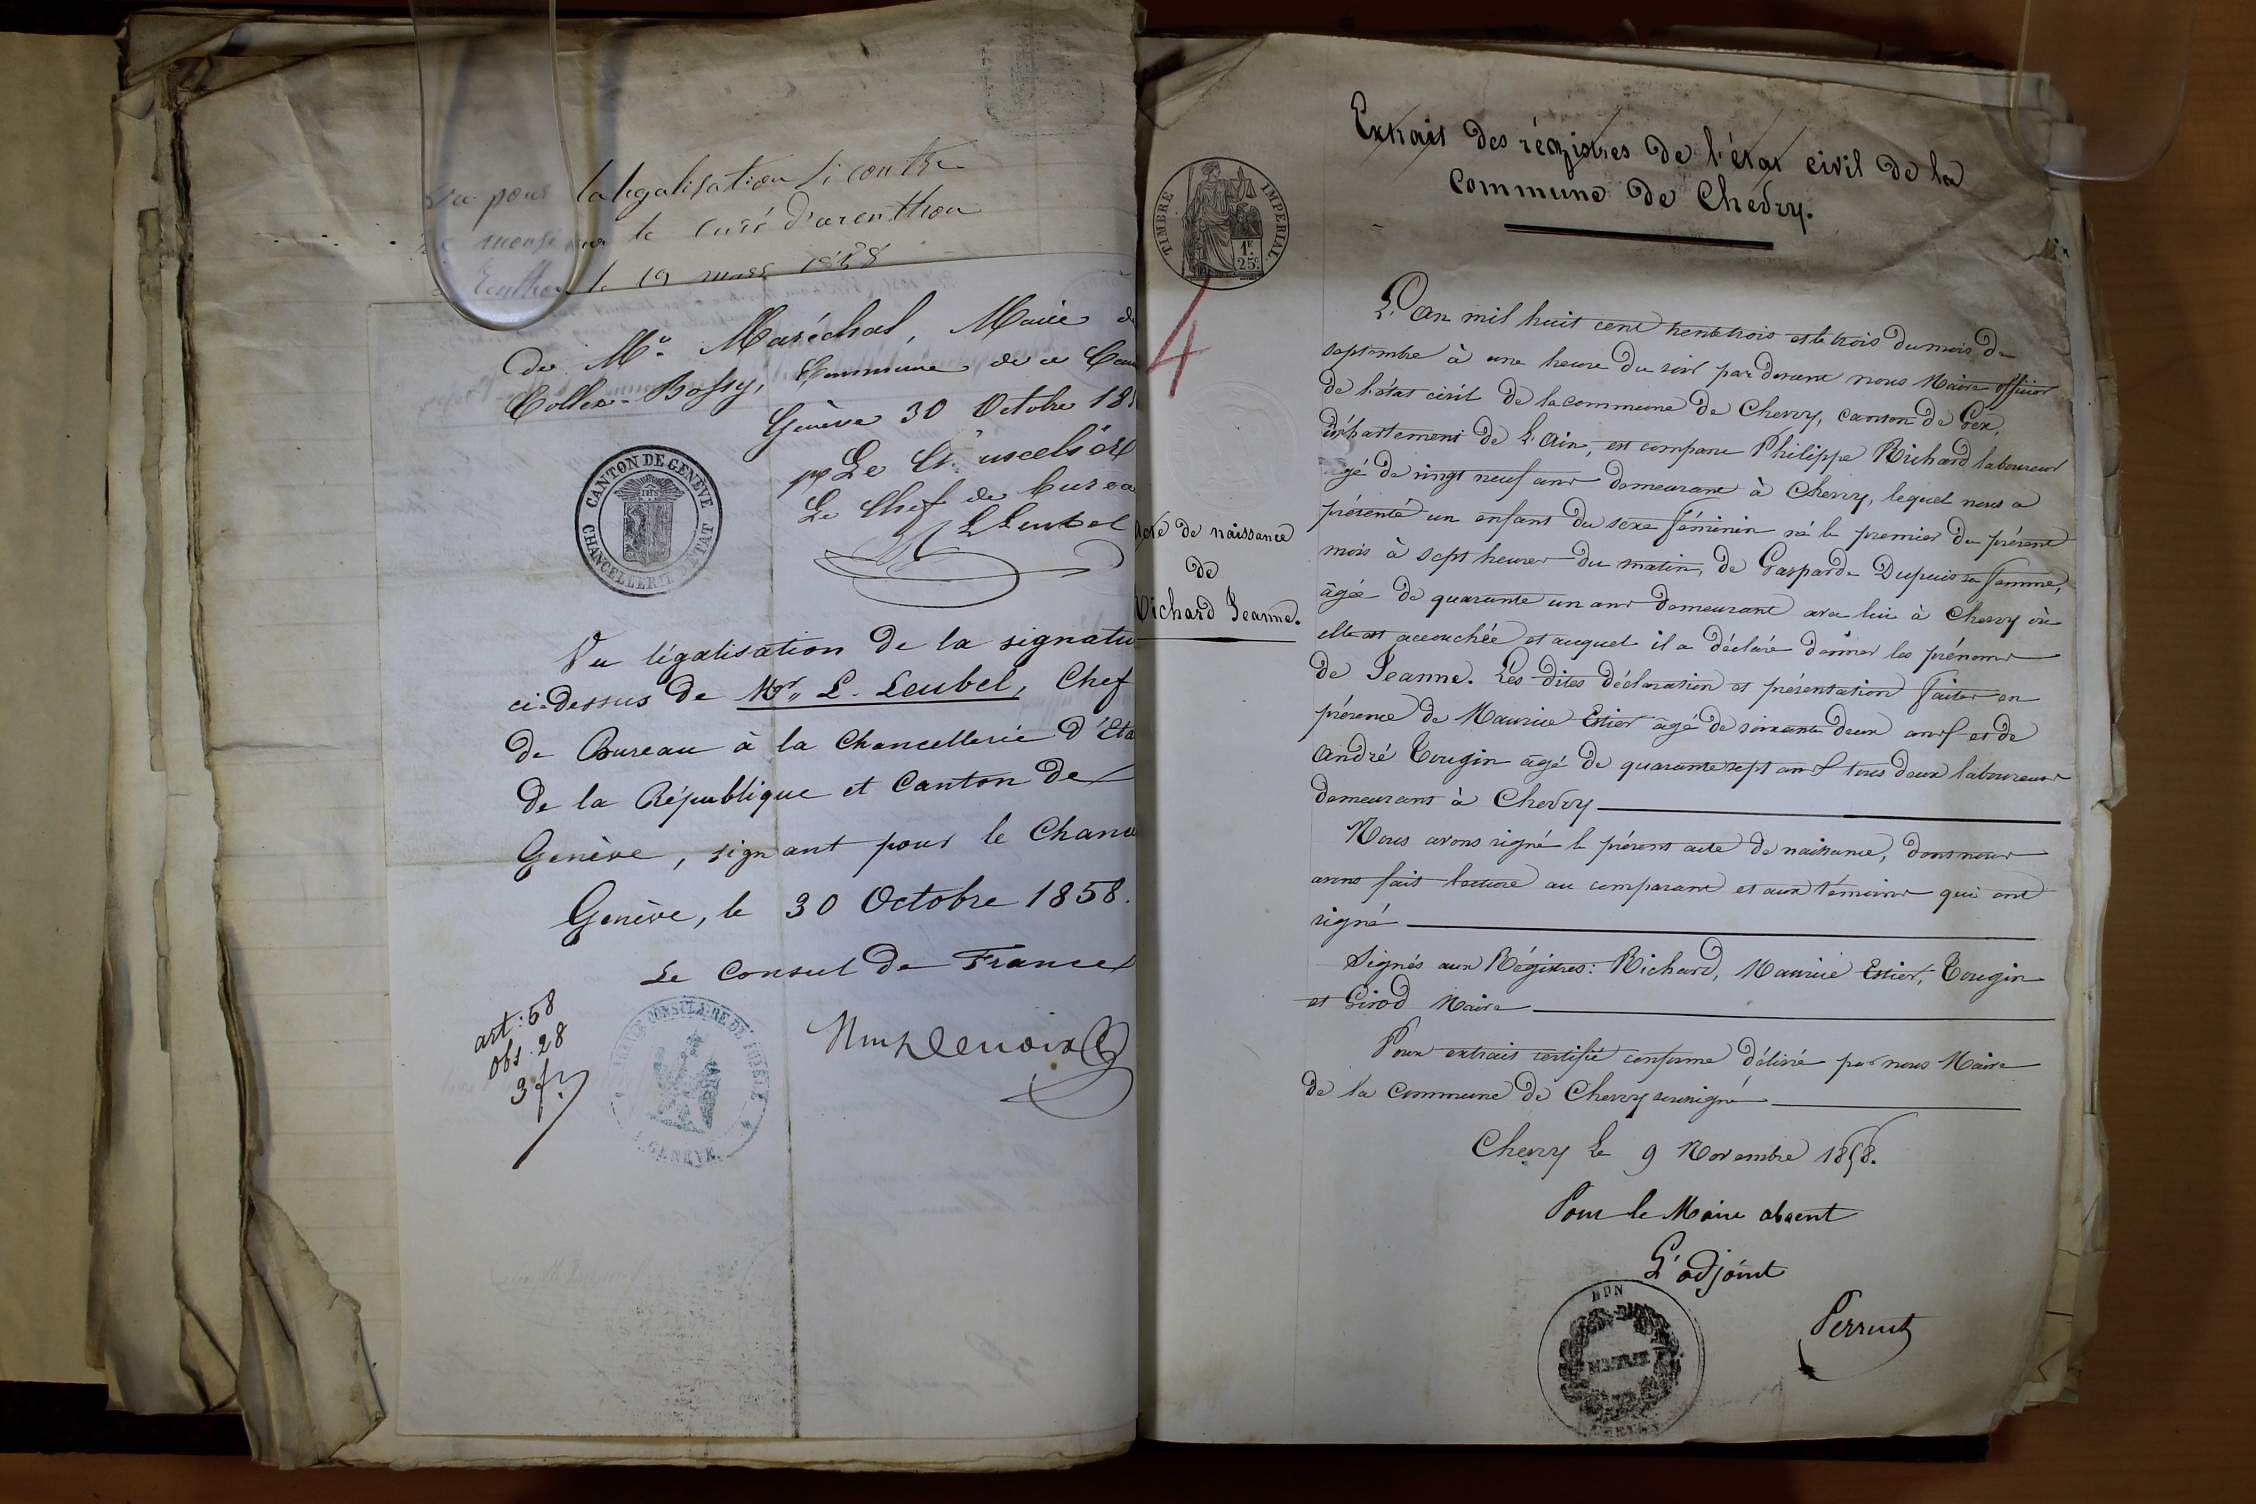 Vu pour la légalisation ci contre
de monsieur le curé d'arenthon
le 19 mars 1858
de Mr. Maréchal, Maire de
Collex-Bossy, Commune de ce Can
Genève 30 Octobre 18
pr Le Chancelier
Le Chef de bureau
L Leubel
CANTON DE GENÈVE
CHANCELLERIE D'ETAT
Vu légalisation de la signatu
ci-dessus de Mr. L. Leubel, Chef
de Bureau à la Chancellerie d'Eta
de la République et Canton de
Genève, signant pour le Chance
Genève, le 30 Octobre 1858.
Le Consul de France
art: 58
obs. 28
3 f.
CONSULAIRE DE FRANCE
A GENÈVE
TIMBRE IMPERIAL
1F 25c
4
Extrait des régistres de l'état civil de la
Commune de Chevry.
Acte de naissance
de
Richard Jeanne.
L'an mil huit cent trente trois et le trois du mois de
septembre à une heure du soir par devant nous Maire officier
de l'état civil de la commune de Chevry, canton de Gex,
département de l'Ain, est comparu Philippe Richard laboureur
âgé de vingt neuf ans demeurant à Chevry, lequel nous a
présenté un enfant du sexe féminin né le premier du présent
mois à sept heures du matin, de Gasparde Dupuis sa femme,
âgée de quarante un ans demeurant avec lui à Chevry où
elle est accouchée et auquel il a déclaré donner les prénoms
de Jeanne. Les dites déclaration et présentation faites en
présence de Maurice Estier âgé de soixante deux ans et de
André Tougin âgé de quarante sept ans tous deux laboureurs
demeurant à Chevry
Nous avons signé le présent acte de naissance, dont nous
avons fait lecture au comparant et aux témoins qui ont
signé
Signés aux Régistres: Richard, Maurice Estier, Tougin
et Girod Maire
Pour extrait certifié conforme délivré par nous Maire
de la commune de Chevry soussigné
Chevry le 9 Novembre 1858.
Pour le Maire absent
L'adjoint
MAIRIE